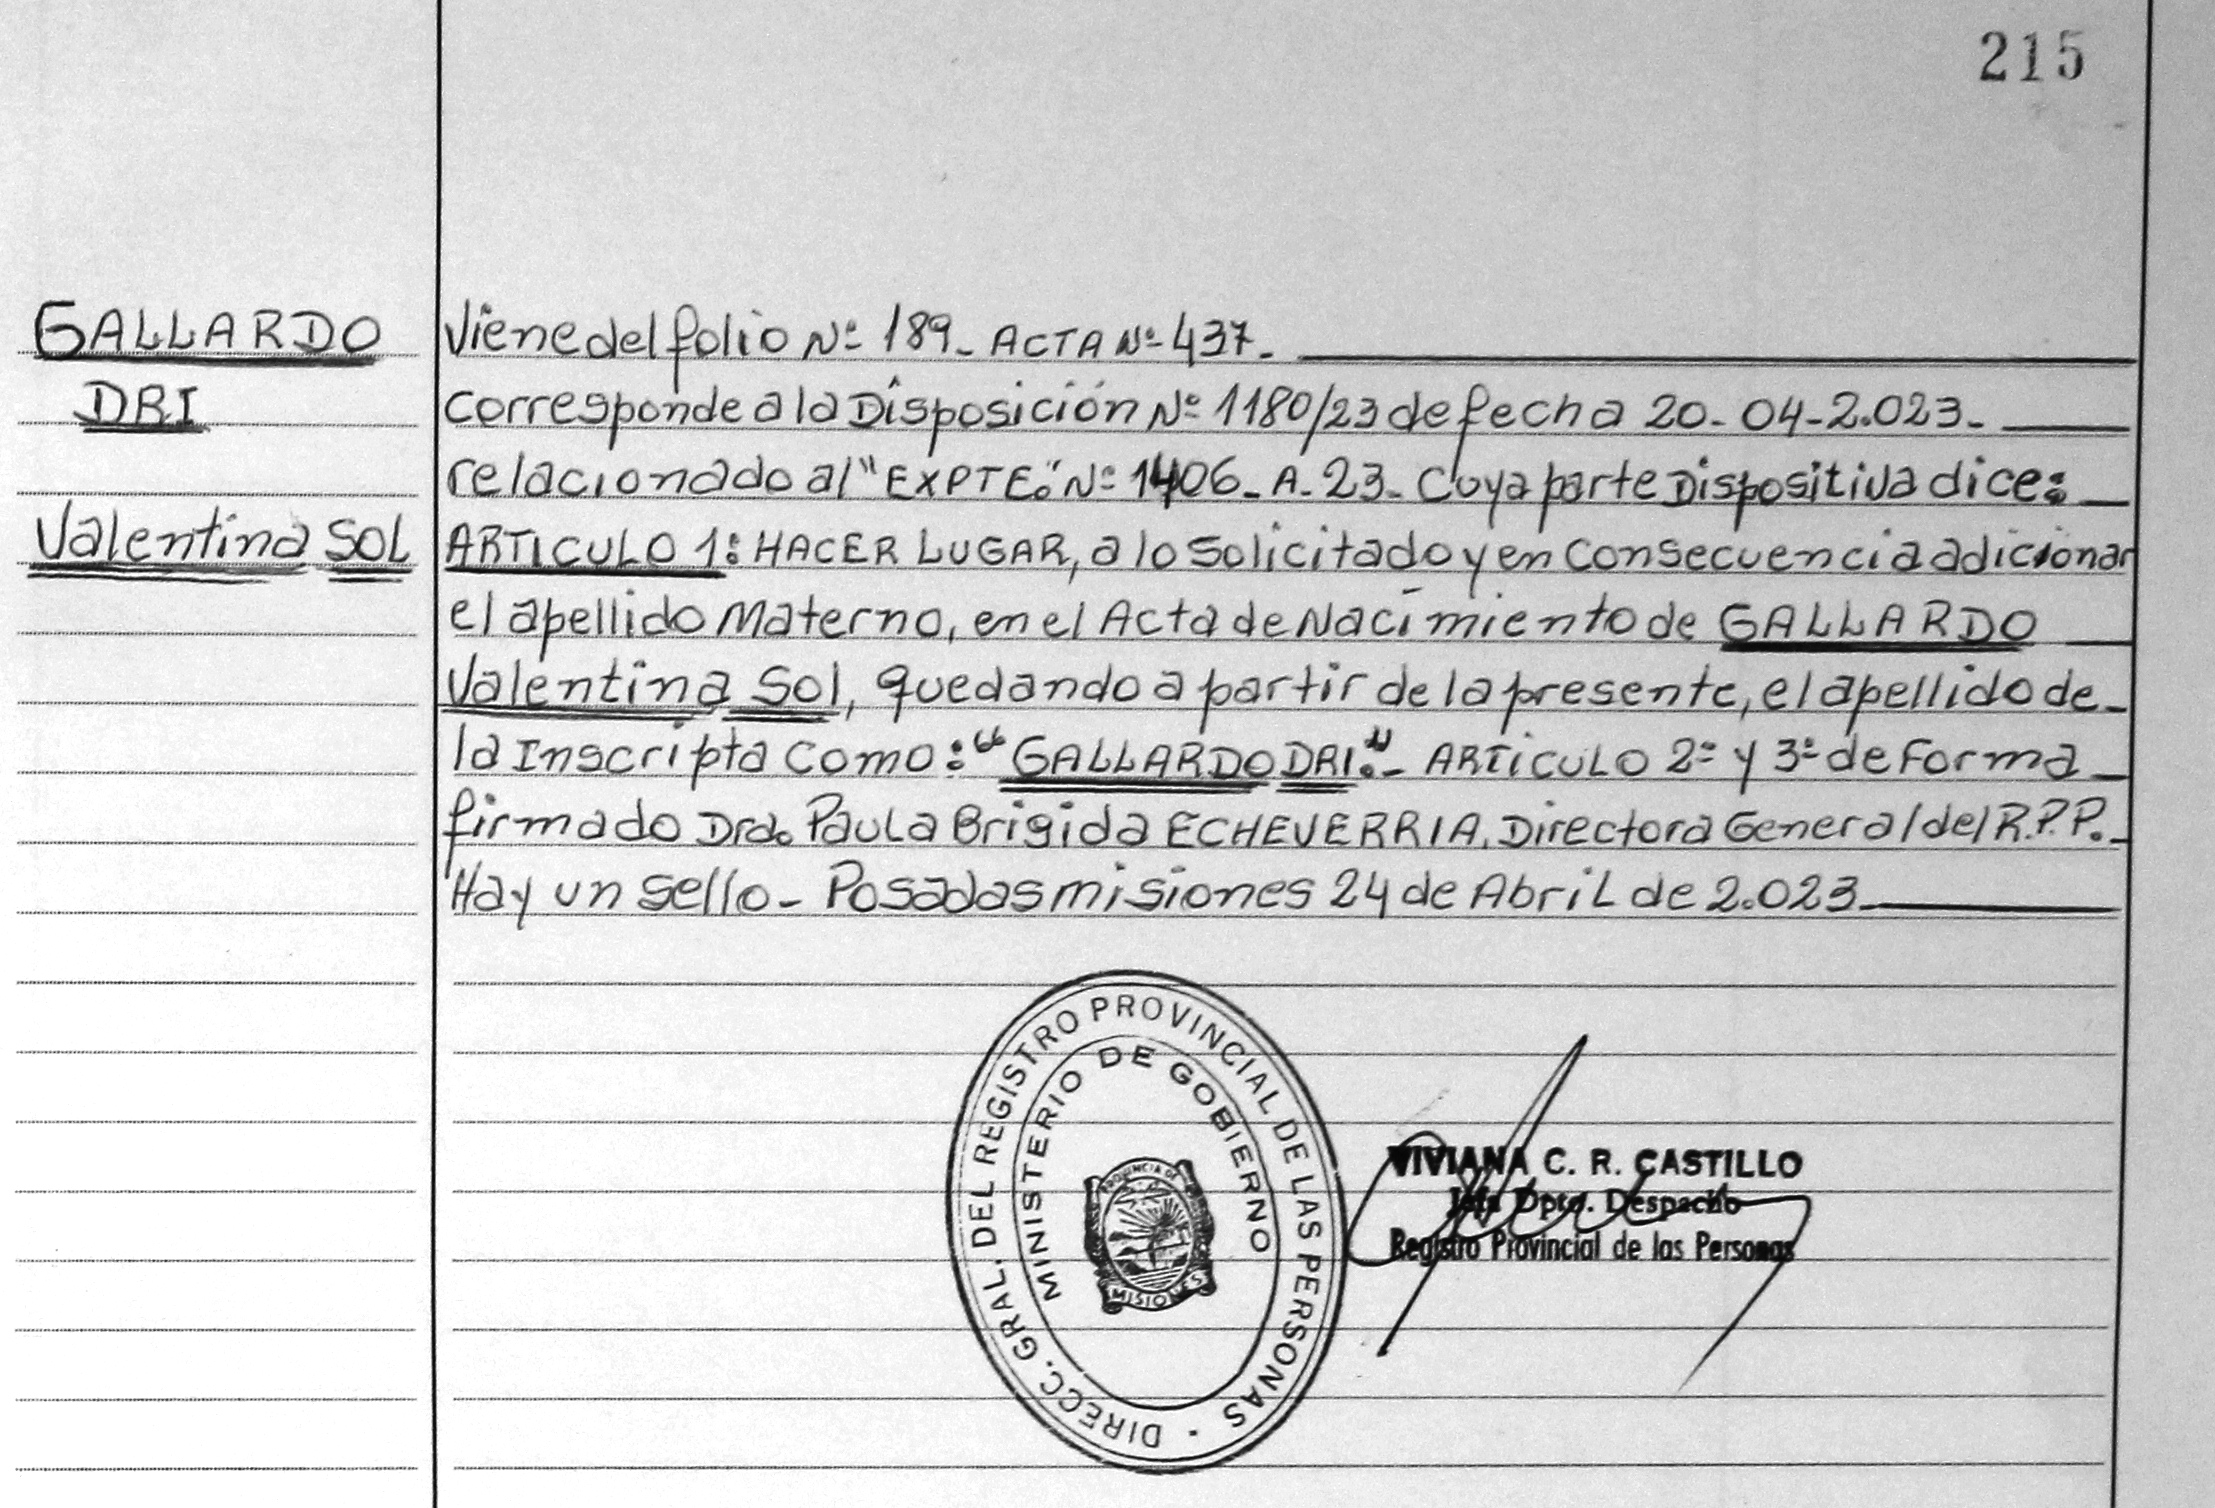 215
GALLARDO
DRI
Valentina SOL
Viene del folio Nº 189_ ACTA Nº 437_
corresponde a la Disposición Nº 1180/23 de fecha 20-04-2.023_
relacionado al "EXPTE." Nº 1406_A_23_ Cuya parte Dispositiva dice:
ARTICULO 1: HACER LUGAR, a lo solicitado y en consecuencia adicionar
el apellido Materno, en el Acta de Nacimiento de GALLARDO
Valentina Sol, quedando a partir de la presente, el apellido de_
la Inscripta como: "GALLARDO DRI."_ ARTICULO 2º y 3º de Forma_
firmado Dra. Paula Brigida ECHEVERRIA, Directora General del R.P.P._
Hay un sello_ Posadas misiones 24 de Abril de 2.023_
DIRECC. GRAL. DEL REGISTRO PROVINCIAL DE LAS PERSONAS
MINISTERIO DE GOBIERNO
PROVINCIA DE
MISIONES
VIVIANA C. R. CASTILLO
Jefa Dpto. Despacho
Registro Provincial de las Personas